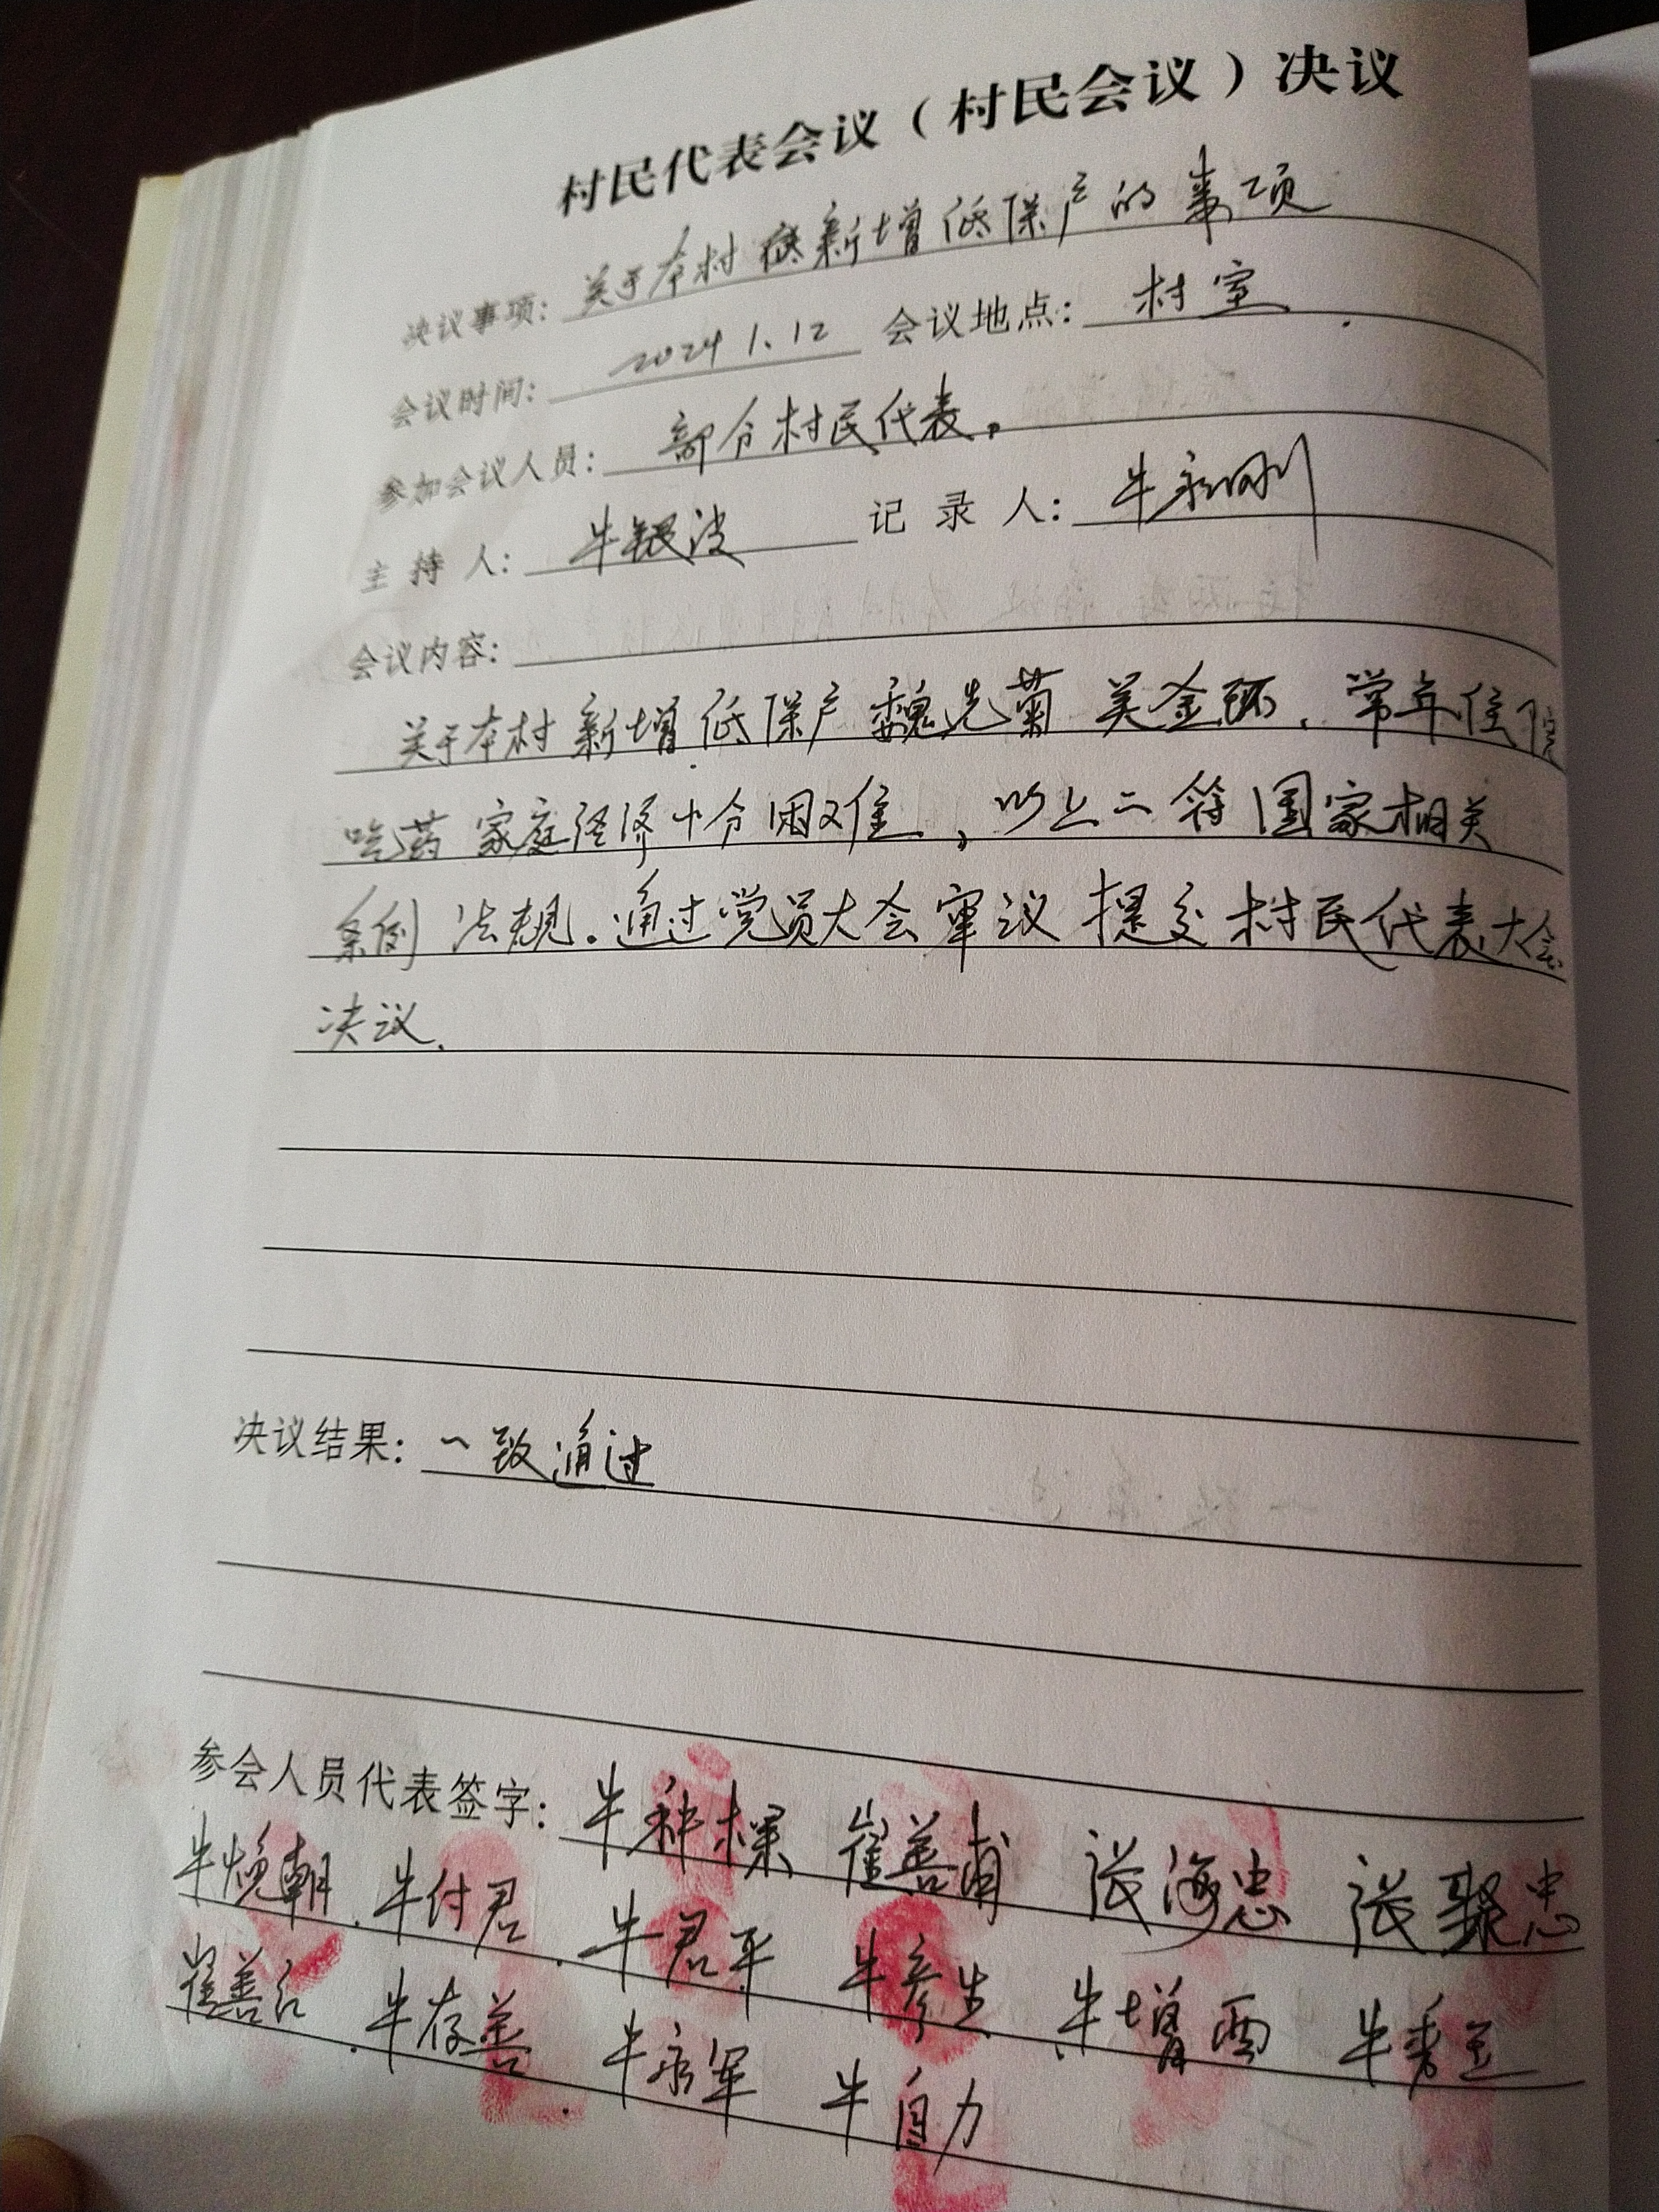 村民代表会议（村民会议）决议
决议事项：关于本村新增低保户的事项
会议时间：2024 1.12 会议地点：村室
参加会议人员：部分村民代表。
主持人：牛银波 记录人：牛永刚
会议内容：
关于本村新增低保户魏先菊 吴金环、常年住院
吃药 家庭经济十分困难，以上二符国家相关
条例 法规。通过党员大会审议 提交村民代表大会
决议.
决议结果：一致通过
参会人员代表签字：牛种槑 崔善甫 张海忠 张聚忠
牛焕朝 牛付君 牛君平 牛彦生 牛增西 牛秀
崔善 牛存善 牛永军 牛自力